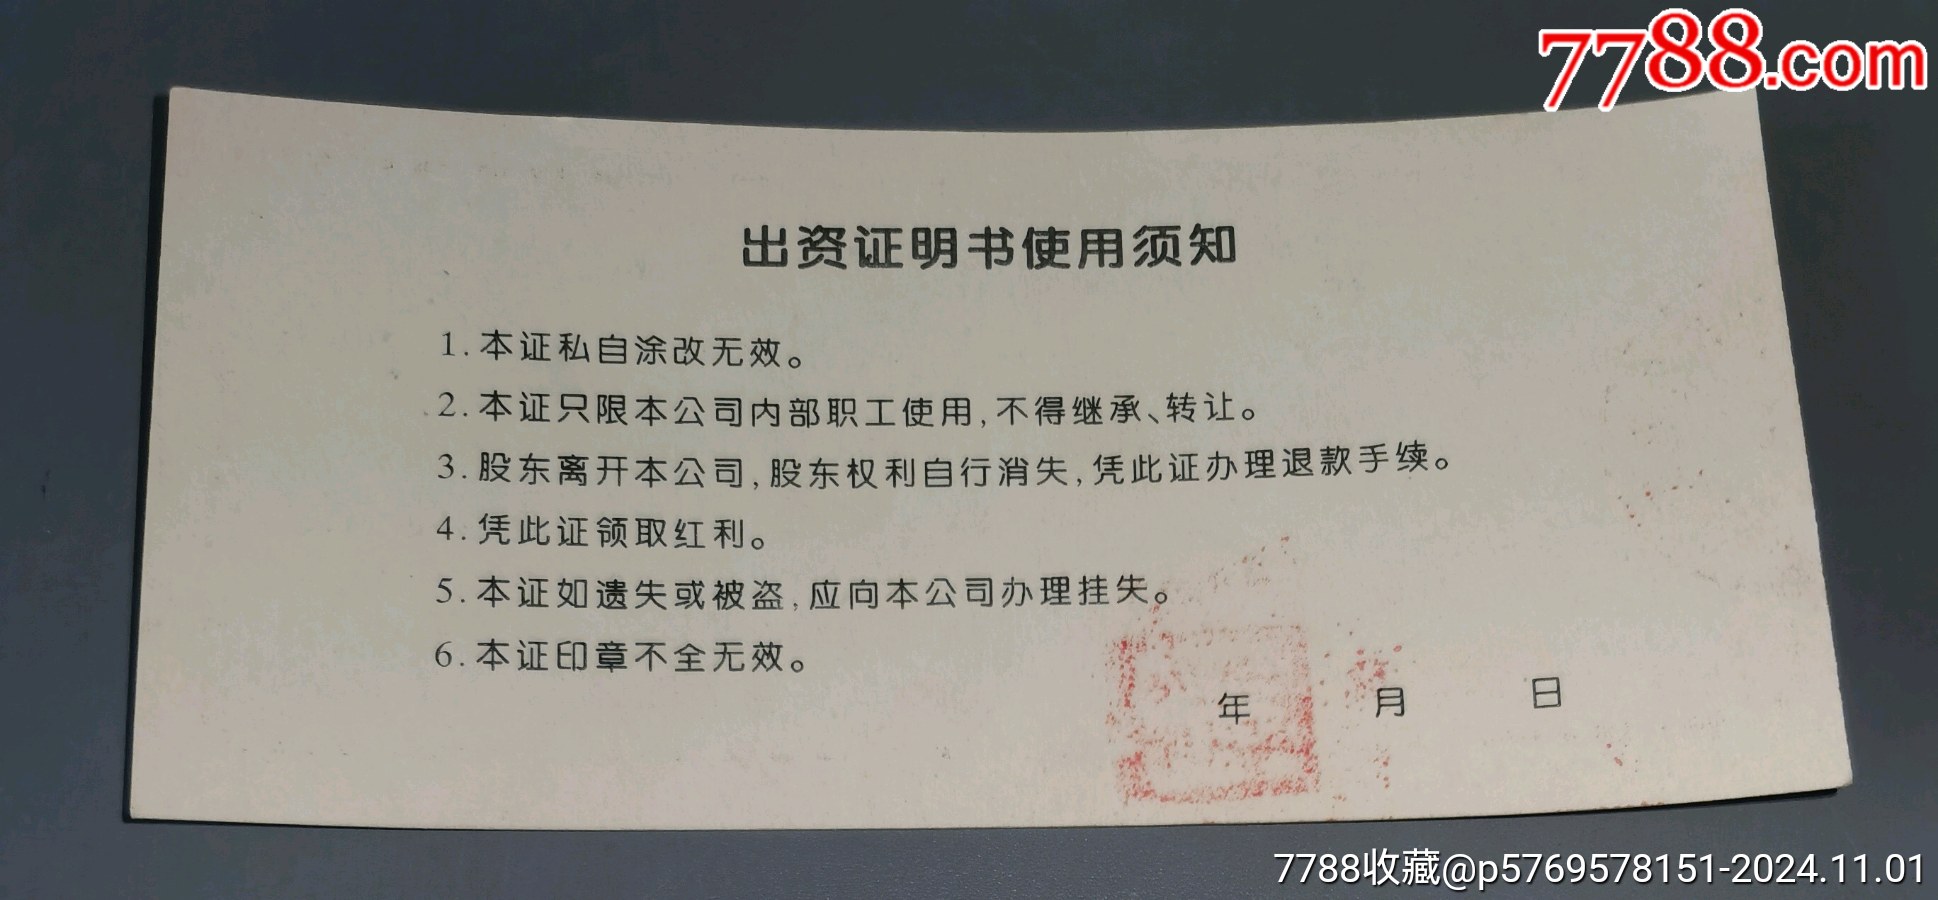 7788.com
出资证明书使用须知
1.本证私自涂改无效。
2.本证只限本公司内部职工使用,不得继承、转让。
3.股东离开本公司,股东权利自行消失,凭此证办理退款手续。
4.凭此证领取红利。
5.本证如遗失或被盗,应向本公司办理挂失。
6.本证印章不全无效。
年 月 日
7788收藏@p5769578151-2024.11.01